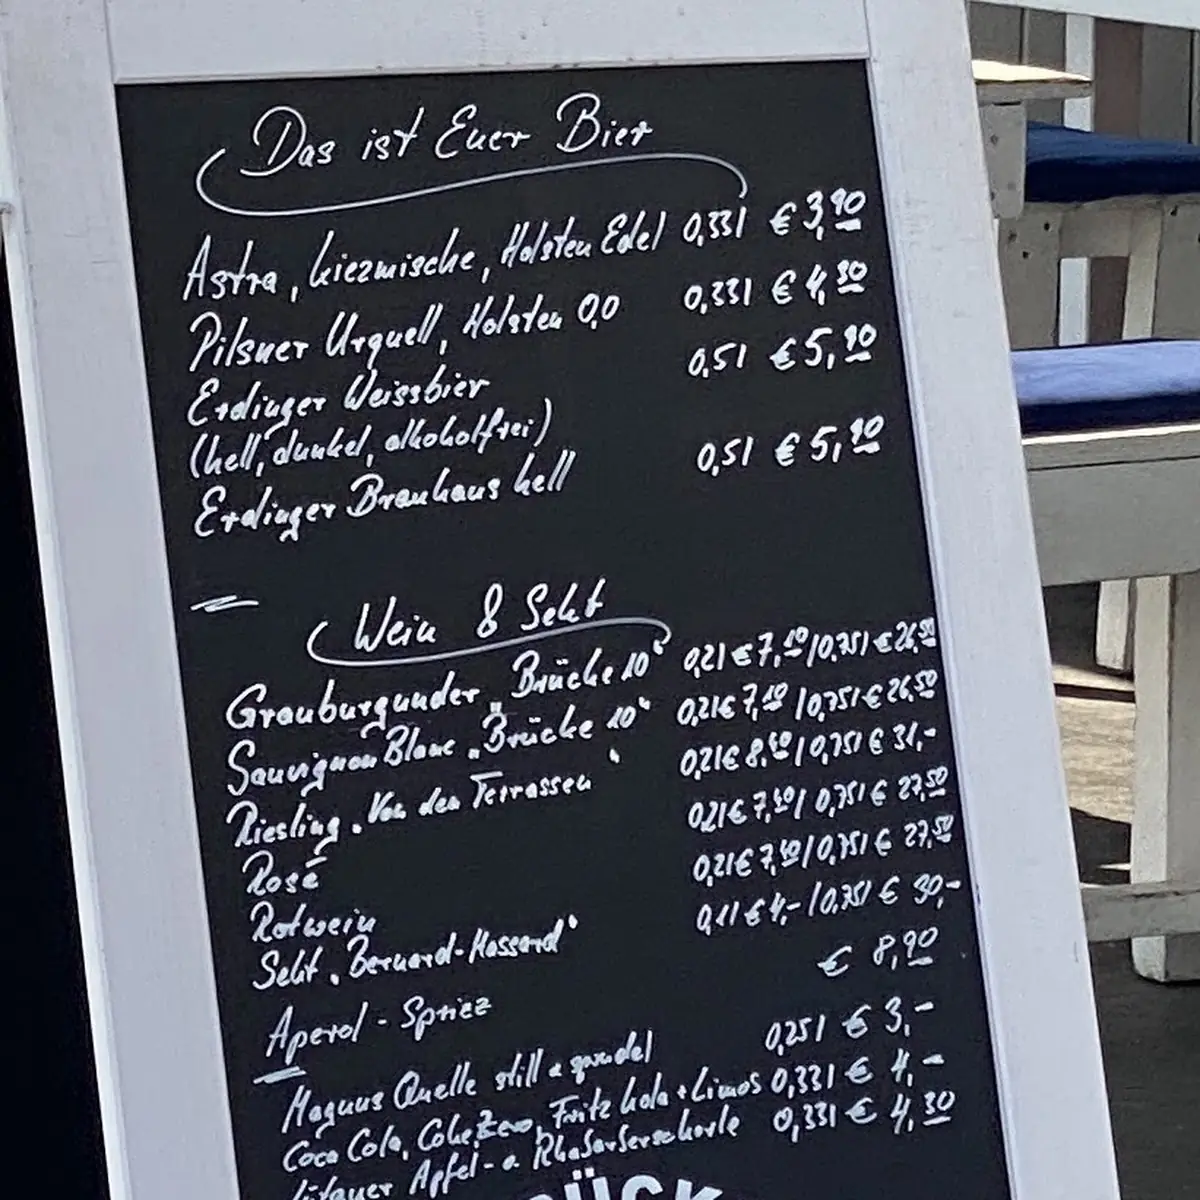 Das ist Euer Bier
Astra, kiezmische, Holsten Edel 0,33l € 3,90
Pilsner Urquell, Holsten 0,0 0,33l € 4,30
Erdinger Weissbier 0,5l € 5,90
(hell, dunkel, alkoholfrei)
Erdinger Brauhaus hell 0,5l € 5,90
Wein & Sekt
Grauburgunder "Brücke 10" 0,2l € 7,10 / 0,75l € 26,50
Sauvignon Blanc "Brücke 10" 0,2l € 7,10 / 0,75l € 26,50
Riesling "Von den Terrassen" 0,2l € 8,50 / 0,75l € 31,-
Rosé 0,2l € 7,50 / 0,75l € 27,50
Rotwein 0,2l € 7,50 / 0,75l € 27,50
Sekt "Bernard-Massard" 0,1l € 4,- / 0,75l € 30,-
Aperol - Spriez € 8,90
Magnus Quelle still & sprudel 0,25l € 3,-
Coca Cola, Coke Zero, Fritz kola + Limos 0,33l € 4,-
Apfel- o. Rhabarberschorle 0,33l € 4,30